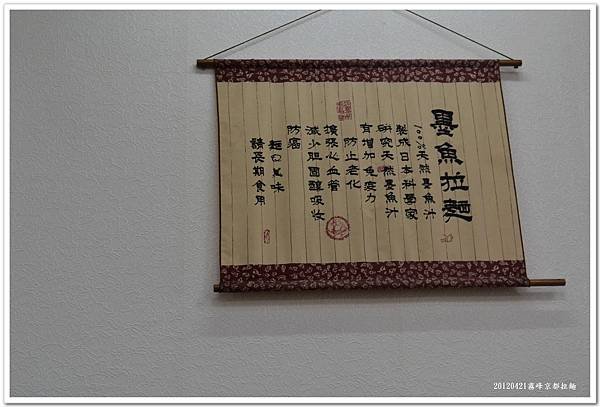 墨魚拉麵
100%天然墨魚汁
製成日本科學家
研究天然墨魚汁
有增加免疫力
防止老化
擴張心血管
減少胆固醇吸收
防癌
麵Q美味
請長期食用
20120421霧峰京都拉麵